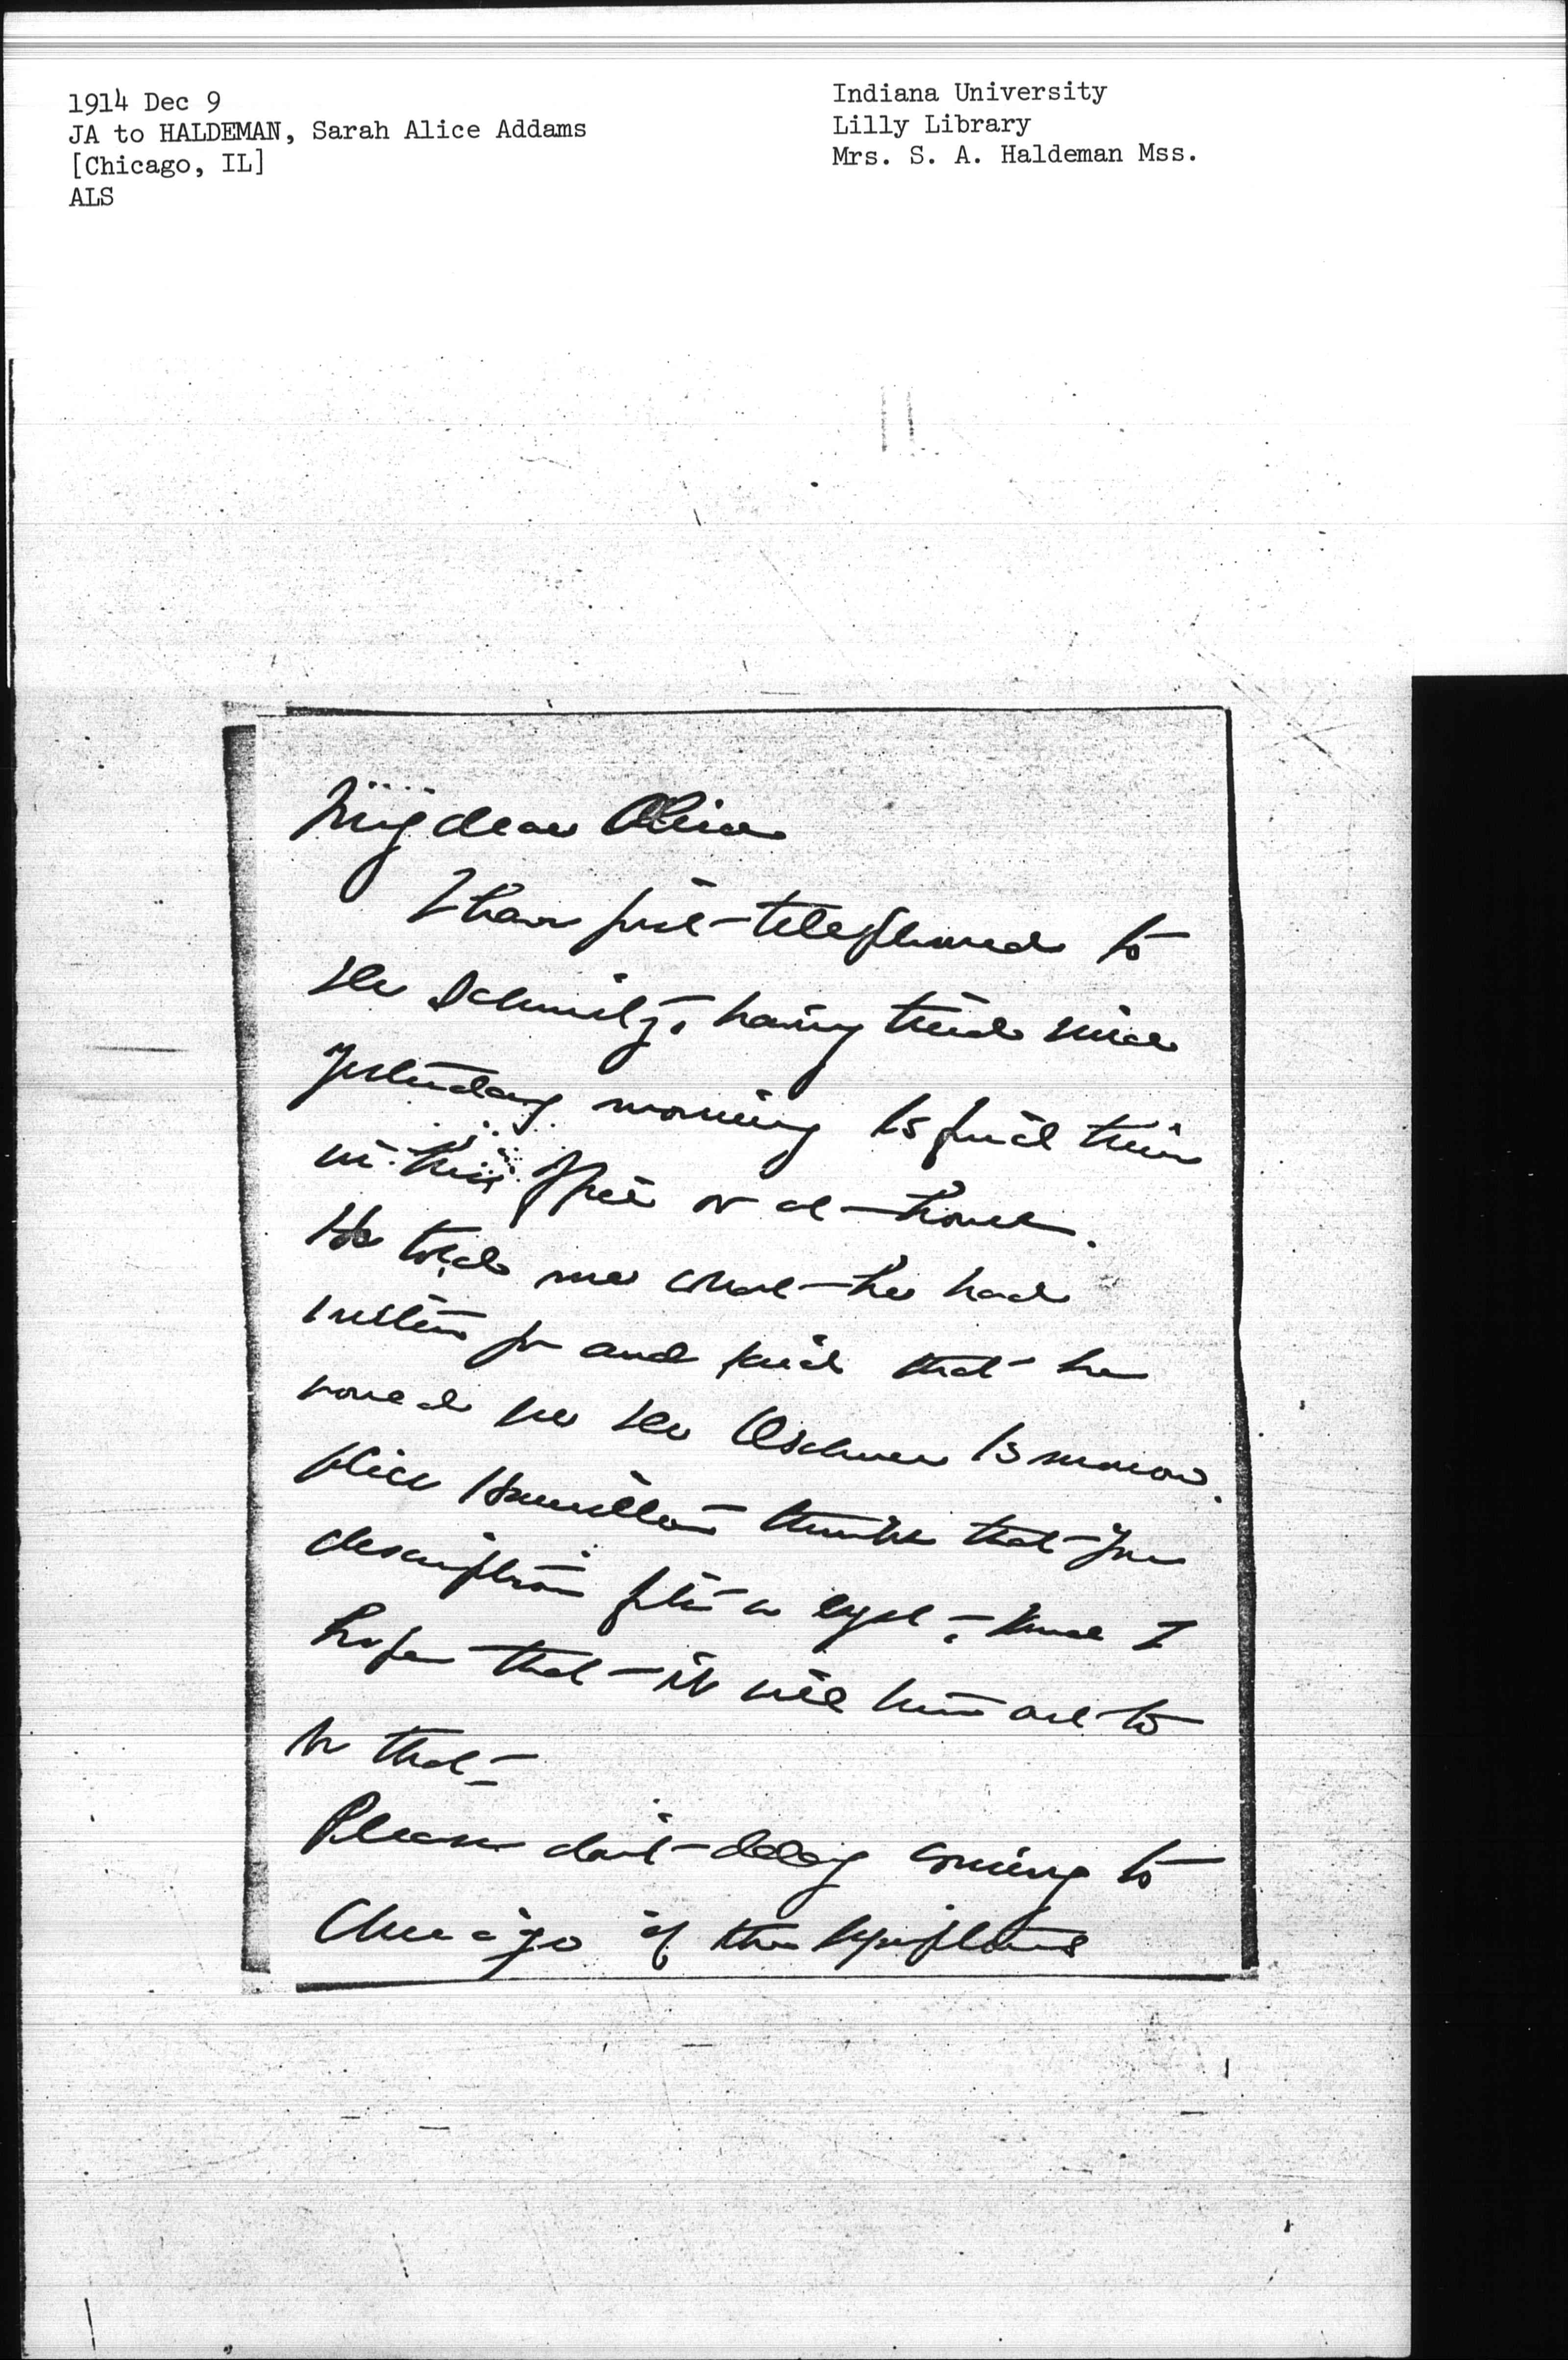 1914 Dec 9
JA to HALDEMAN, Sarah Alice Addams
[Chicago, IL]
ALS
Indiana University
Lilly Library
Mrs. S. A. Haldeman Mss.
My dear Alice
I have just telephoned to
Dr Schmitz, having tried since
yesterday morning to find him
in his office or at home.
He told me what he had
written you and said that he
would see Dr Ochsner tomorrow.
Alice Hamilton thinks that your
description fits a cyst, &amp; I
hope that it will turn out to
be that —
Please don't delay coming to
Chicago if the symptoms